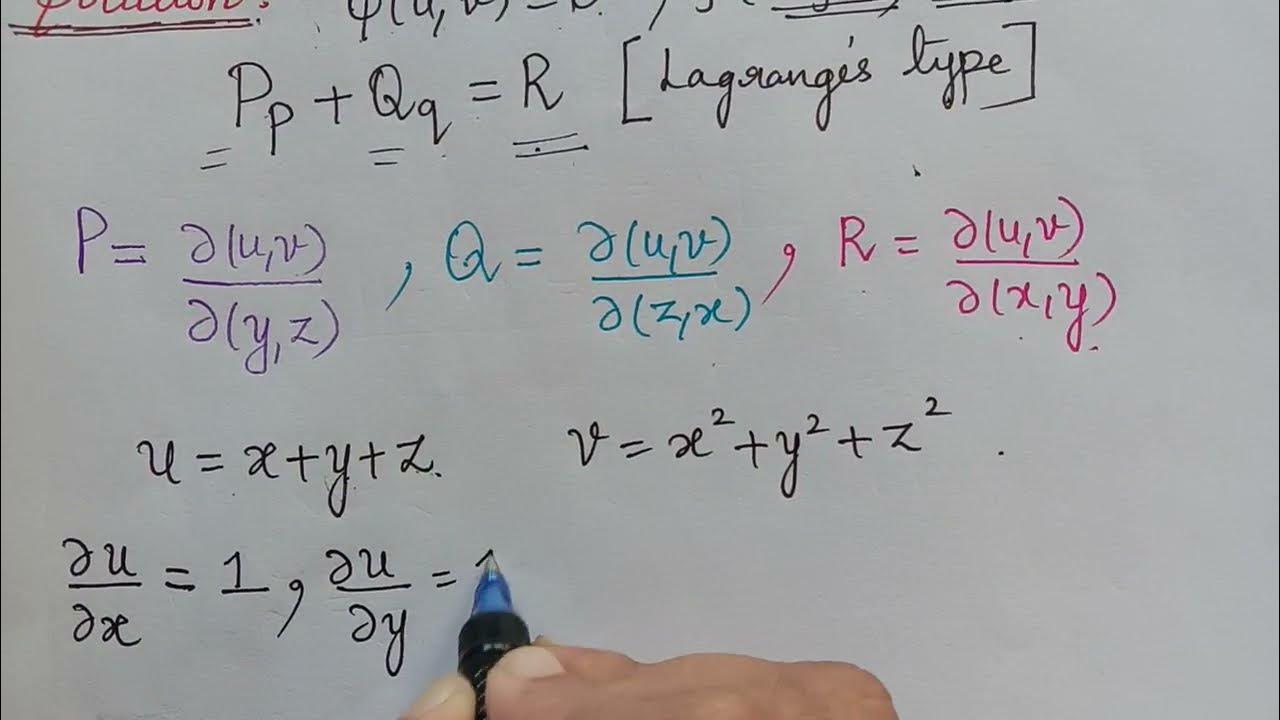 Solution:
Pp + Qq = R [Lagrange's type]
P = ∂(u,v)/∂(y,z) , Q = ∂(u,v)/∂(z,x) , R = ∂(u,v)/∂(x,y).
u = x+y+z. v = x²+y²+z² .
∂u/∂x = 1 , ∂u/∂y =